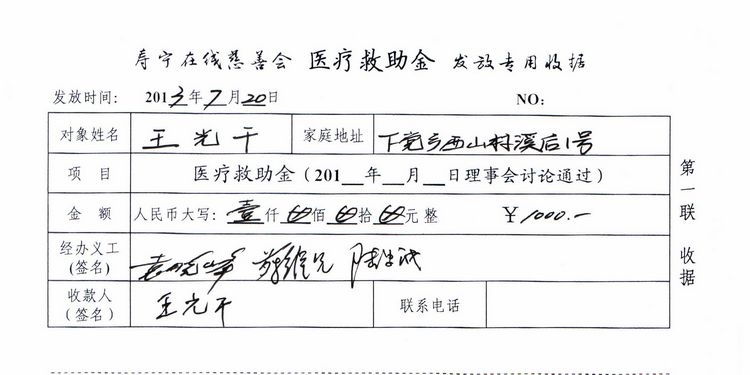 寿宁在线慈善会 医疗救助金 发放专用收据
发放时间: 2013年7月20日 NO:
对象姓名 王光干 家庭地址 下党乡西山村溪后1号
项 目 医疗救助金(201__年__月__日理事会讨论通过)
金 额 人民币大写: 壹仟 佰 拾 元整 ¥1000.-
经办义工
(签名)
收款人 王光干 联系电话
(签名)
第一联 收据